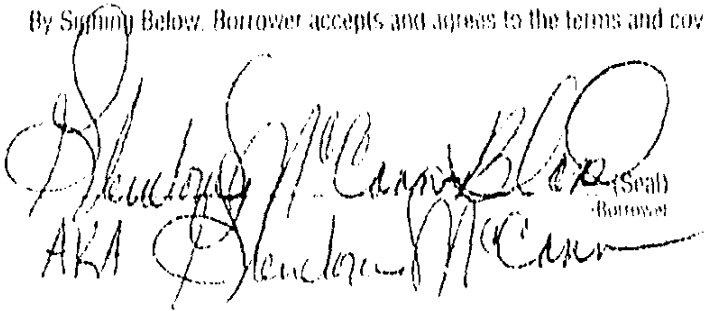 By Signing Below, Borrower accepts and agrees to the terms and cov
McCann (Seal)
-Borrower
AKA McCann